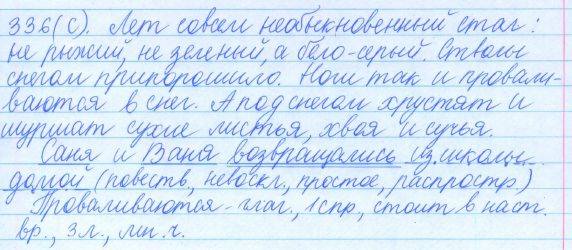 336(с). Лет совсем необыкновенный стал:
не рыжий, не зеленый, а бело-серый. Стволы
снегом припорошило. Ноги так и провали-
ваются в снег. А под снегом хрустят и
шуршат сухие листья, хвоя и сучья.
Саня и Ваня возвращались из школы
домой (повеств, невоскл, простое, распростр)
Проваливаются - глаг., 1 спр, стоит в наст.
вр., 3 л., мн. ч.